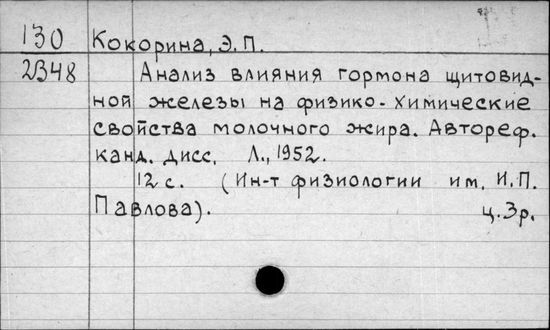 130 Кокорина, Э.П.
2348 Анализ влияния гормона щитовид-
ной железы на физико-химические
свойства молочного жира. Автореф.
канд. дисс. Л., 1952.
12 с. (Ин-т физиологии им. И.П.
Павлова). ц. 3р.